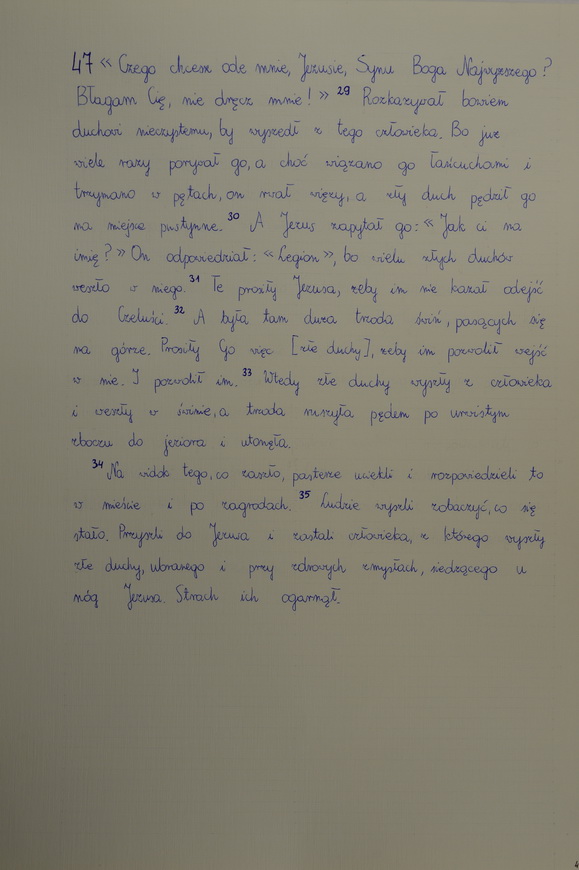 47 « Czego chcesz ode mnie, Jezusie, Synu Boga Najwyższego?
Błagam Cię, nie dręcz mnie! » 29 Rozkazywał bowiem
duchowi nieczystemu, by wyszedł z tego człowieka. Bo już
wiele razy porywał go, a choć wiązano go łańcuchami i
trzymano w pętach, on rwał więzy, a zły duch pędził go
na miejsce pustynne. 30 A Jezus zapytał go: « Jak ci na
imię? » On odpowiedział: « Legion », bo wielu złych duchów
weszło w niego. 31 Te prosiły Jezusa, żeby im nie kazał odejść
do Czeluści. 32 A była tam duża trzoda świń, pasących się
na górze. Prosiły Go więc [złe duchy], żeby im pozwolił wejść
w nie. I pozwolił im. 33 Wtedy złe duchy wyszły z człowieka
i weszły w świnie, a trzoda ruszyła pędem po urwistym
zboczu do jeziora i utonęła.
34 Na widok tego, co zaszło, pasterze uciekli i rozpowiedzieli to
w mieście i po zagrodach. 35 Ludzie wyszli zobaczyć, co się
stało. Przyszli do Jezusa i zastali człowieka, z którego wyszły
złe duchy, ubranego i przy zdrowych zmysłach, siedzącego u
nóg Jezusa. Strach ich ogarnął.
4